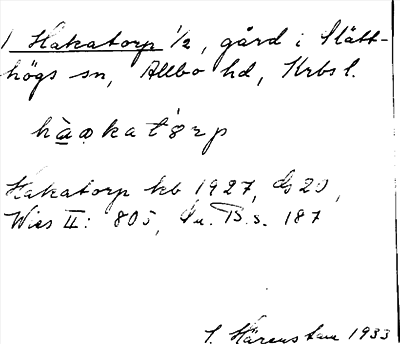 1 Hakatorp 1/2, gård i Slätt-
högs sn, Allbo hd, Krbs l.
hàǫkatórp
Hakatorp kb 1927, ds 20,
Wies II: 805, Su. B. s. 187
1933